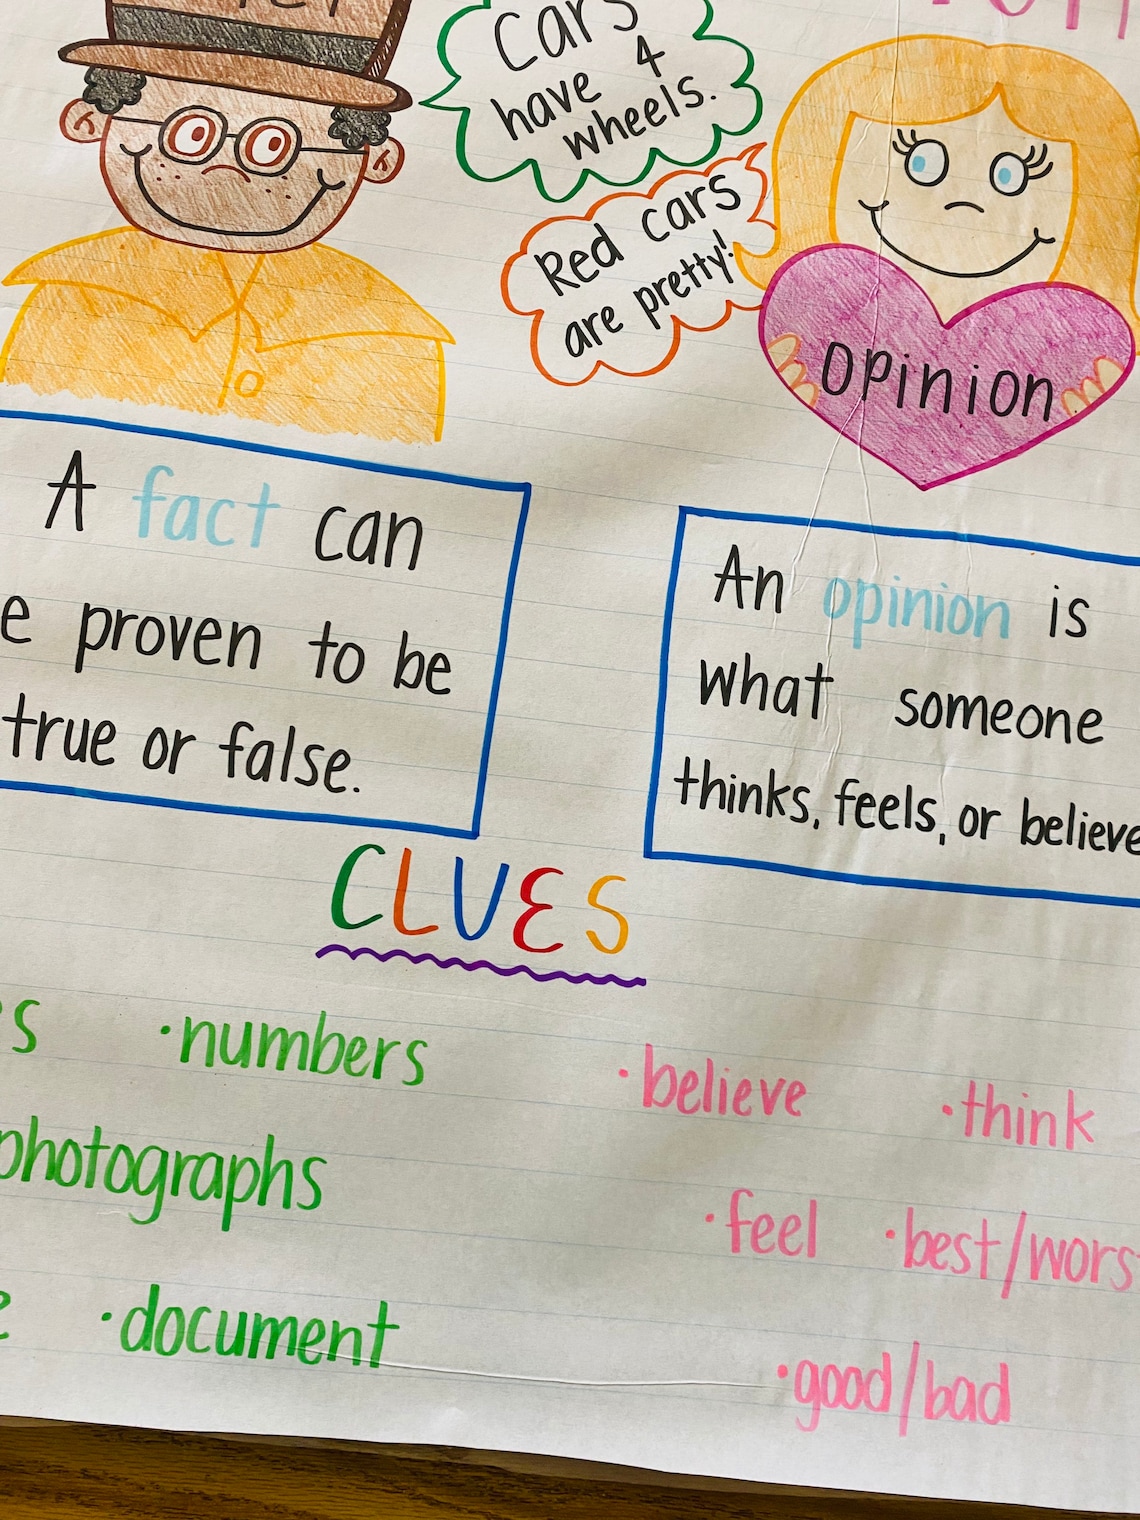 Cars
have 4
wheels.
Red cars
are pretty!
opinion
A fact can
e proven to be
true or false.
An opinion is
what someone
thinks, feels, or believe
CLUES
s
·numbers
photographs
·document
·believe
·think
·feel
·best/wors
·good/bad